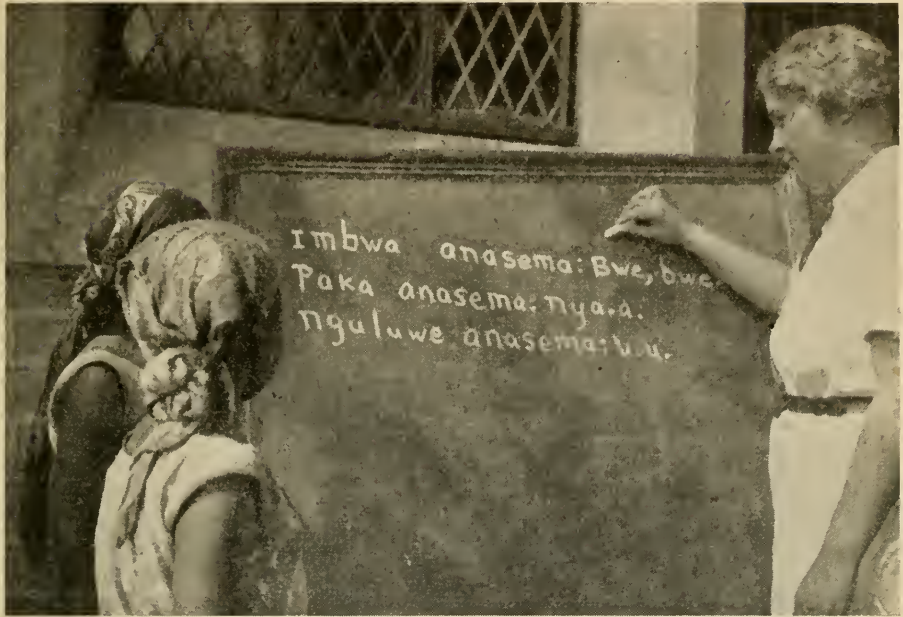 Imbwa anasema: Bwe, bwe
Paka anasema: nya.a.
nguluwe anasema: u.u.